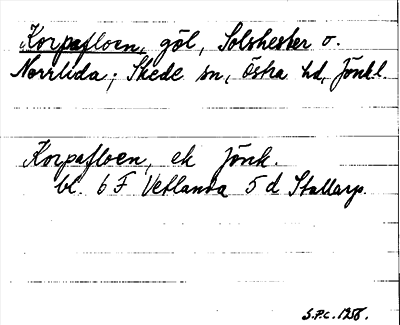 Korpafloen, göl, Solshester o.
Norrlida; Skede sn, Östra hd, Jönk.l.
Korpafloen, ek Jönk.
bl. 6 F Vetlanda 5 d Stallarp.
S.P.C. 1258.